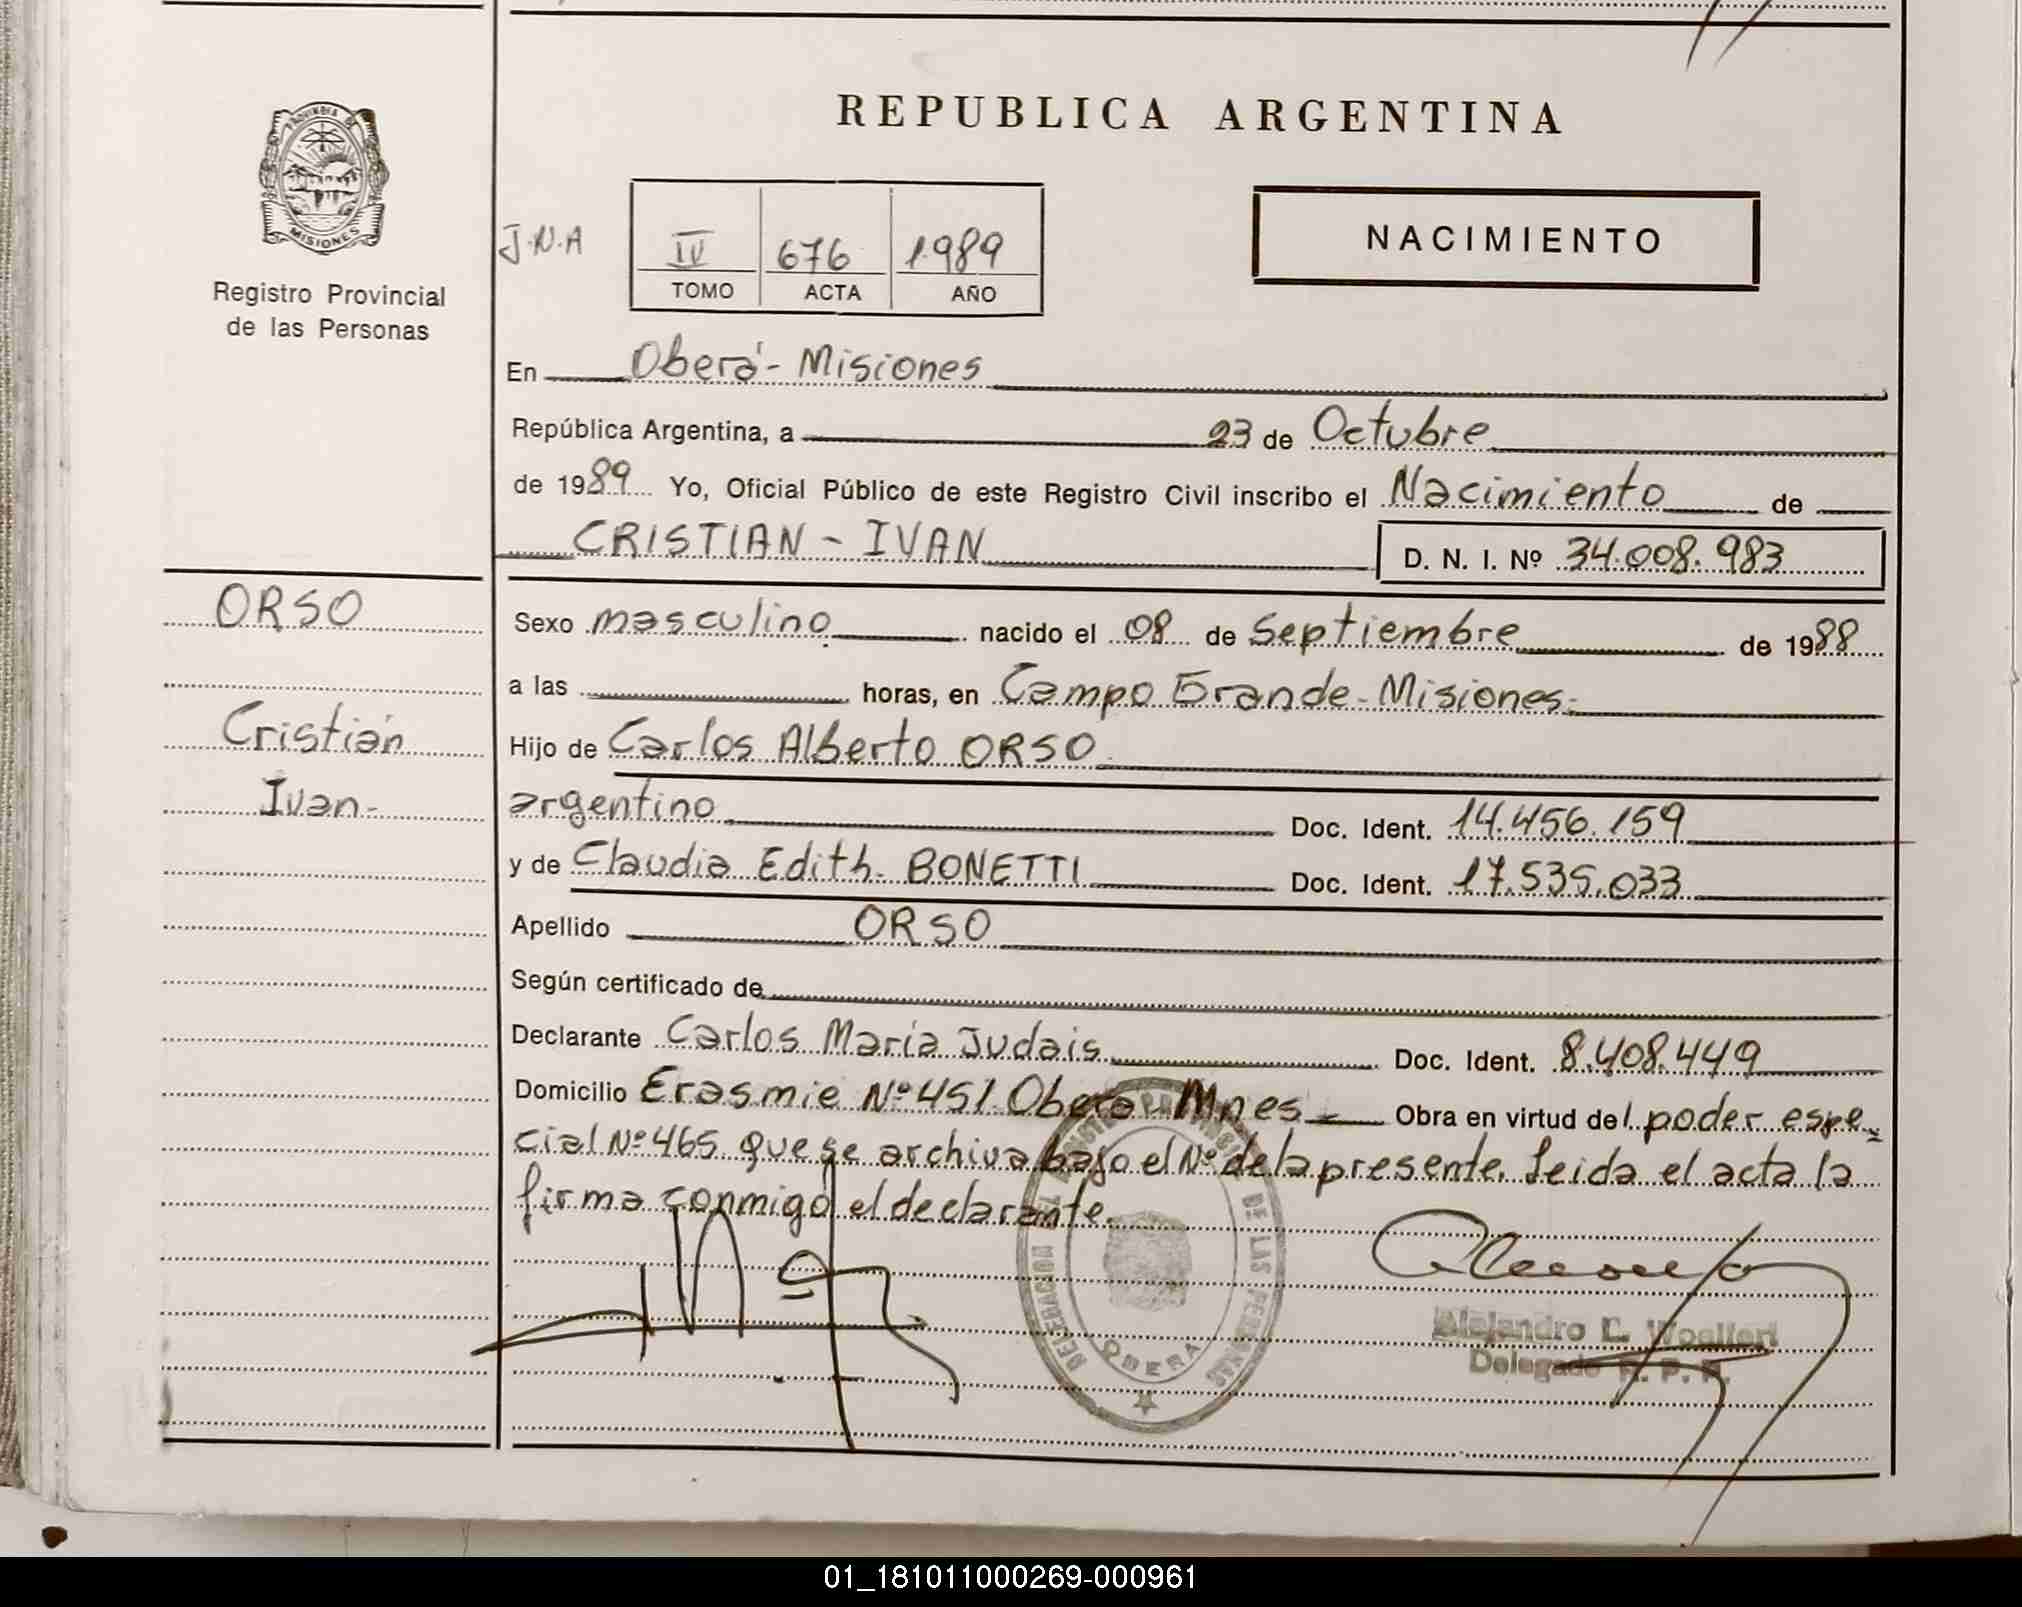 REPUBLICA ARGENTINA
PROVINCIA DE
MISIONES
Registro Provincial
de las Personas
J.N.A
IV 676 1989
TOMO ACTA AÑO
NACIMIENTO
En Oberá - Misiones
República Argentina, a 23 de Octubre
de 1989 Yo, Oficial Público de este Registro Civil inscribo el Nacimiento de
CRISTIAN - IVAN D. N. I. Nº 34.008.983
ORSO
Cristián
Ivan-
Sexo masculino nacido el 08 de Septiembre de 1988
a las horas, en Campo Grande - Misiones.
Hijo de Carlos Alberto ORSO
argentino Doc. Ident. 14.456.159
y de Claudia Edith BONETTI Doc. Ident. 17.535.033
Apellido ORSO
Según certificado de
Declarante Carlos María Judais Doc. Ident. 8.408.449
Domicilio Erasmie Nº 451 Oberá - Mnes Obra en virtud del poder espe
cial Nº 465 que se archiva bajo el Nº de la presente. Leida el acta la
firma conmigo el declarante.
DELEGACION DEL REGISTRO PROVINCIAL DE LAS PERSONAS
OBERA
Alejandro L.
Delegado R. P. P.
01_181011000269-000961